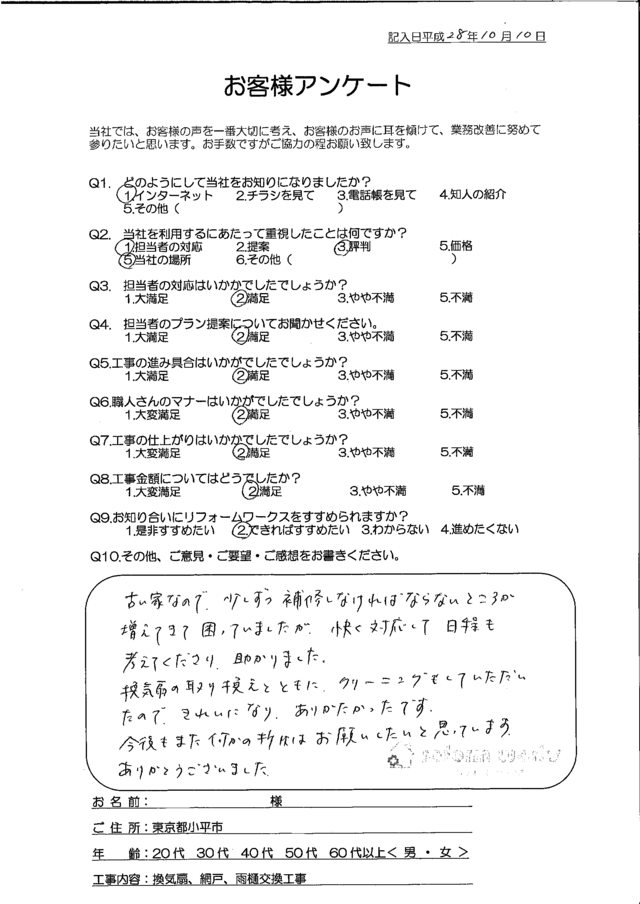 記入日平成28年10月10日
お客様アンケート
当社では、お客様の声を一番大切に考え、お客様のお声に耳を傾けて、業務改善に努めて
参りたいと思います。お手数ですがご協力の程お願い致します。
Q1. どのようにして当社をお知りになりましたか?
1.インターネット 2.チラシを見て 3.電話帳を見て 4.知人の紹介
5.その他( )
Q2. 当社を利用するにあたって重視したことは何ですか?
1.担当者の対応 2.提案 3.評判 5.価格
5.当社の場所 6.その他( )
Q3. 担当者の対応はいかがでしたでしょうか?
1.大満足 2.満足 3.やや不満 5.不満
Q4. 担当者のプラン提案についてお聞かせください。
1.大満足 2.満足 3.やや不満 5.不満
Q5.工事の進み具合はいかがでしたでしょうか?
1.大満足 2.満足 3.やや不満 5.不満
Q6.職人さんのマナーはいかがでしたでしょうか?
1.大変満足 2.満足 3.やや不満 5.不満
Q7.工事の仕上がりはいかがでしたでしょうか?
1.大変満足 2.満足 3.やや不満 5.不満
Q8.工事金額についてはどうでしたか?
1.大変満足 2.満足 3.やや不満 5.不満
Q9.お知り合いにリフォームワークスをすすめられますか?
1.是非すすめたい 2.できればすすめたい 3.わからない 4.進めたくない
Q10.その他、ご意見・ご要望・ご感想をお書きください。
古い家なので、少しずつ補修しなければならないところが
増えてきて困っていましたが、快く対応して日程も
考えてくださり、助かりました。
換気扇の取り換えとともに、クリーニングもしていただい
たので、きれいになり、ありがたかったです。
今後もまた何かの折にはお願いしたいと思っています。
ありがとうございました。
お名前: 様
ご住所:東京都小平市
年 齢:20代 30代 40代 50代 60代以上<男・女>
工事内容:換気扇、網戸、雨樋交換工事